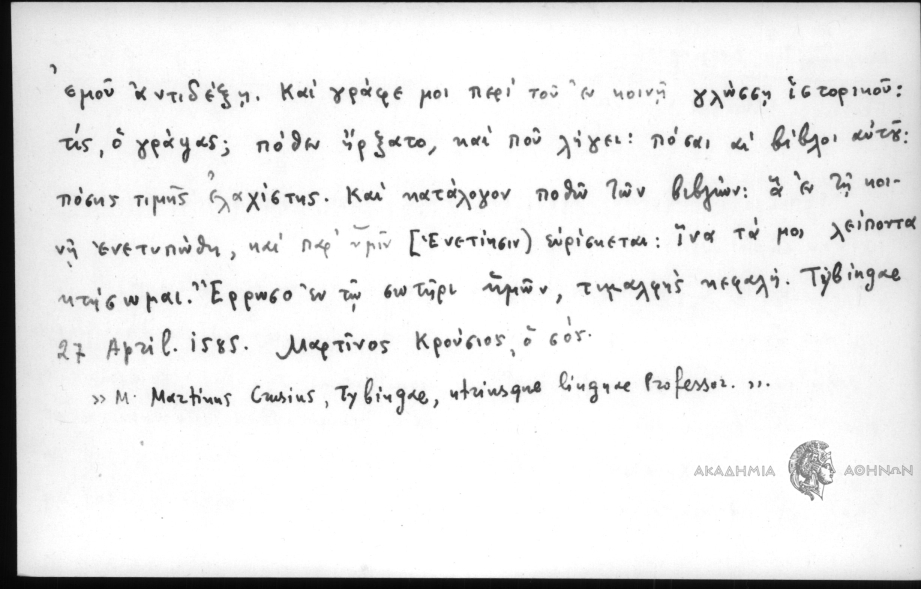 ἐμοῦ ἀντιδέξῃ. Καὶ γράφε μοι περὶ τοῦ ἐν κοινῇ γλώσσῃ ἱστορικοῦ:
τίς, ὁ γράψας; πόθεν ἤρξατο, καὶ ποῦ λήγει: πόσαι αἱ βίβλοι αὐτοῦ:
πόσης τιμῆς ἐλαχίστης. Καὶ κατάλογον ποθῶ τῶν βιβλίων: ἃ ἐν τῇ κοι-
νῇ ἐνετυπώθη, καὶ παρ' ὑμῖν [Ἐνετίησιν) εὑρίσκεται: ἵνα τά μοι λείποντα
κτήσωμαι. Ἔρρωσο ἐν τῷ σωτῆρι ἡμῶν, τιμαλφὴς κεφαλή. Tybingae
27 April. 1585. Μαρτῖνος Κρούσιος, ὁ σός.
»M. Martinus Crusius, Tybingae, utriusque linguae Professor.».
ΑΚΑΔΗΜΙΑ ΑΘΗΝΩΝ